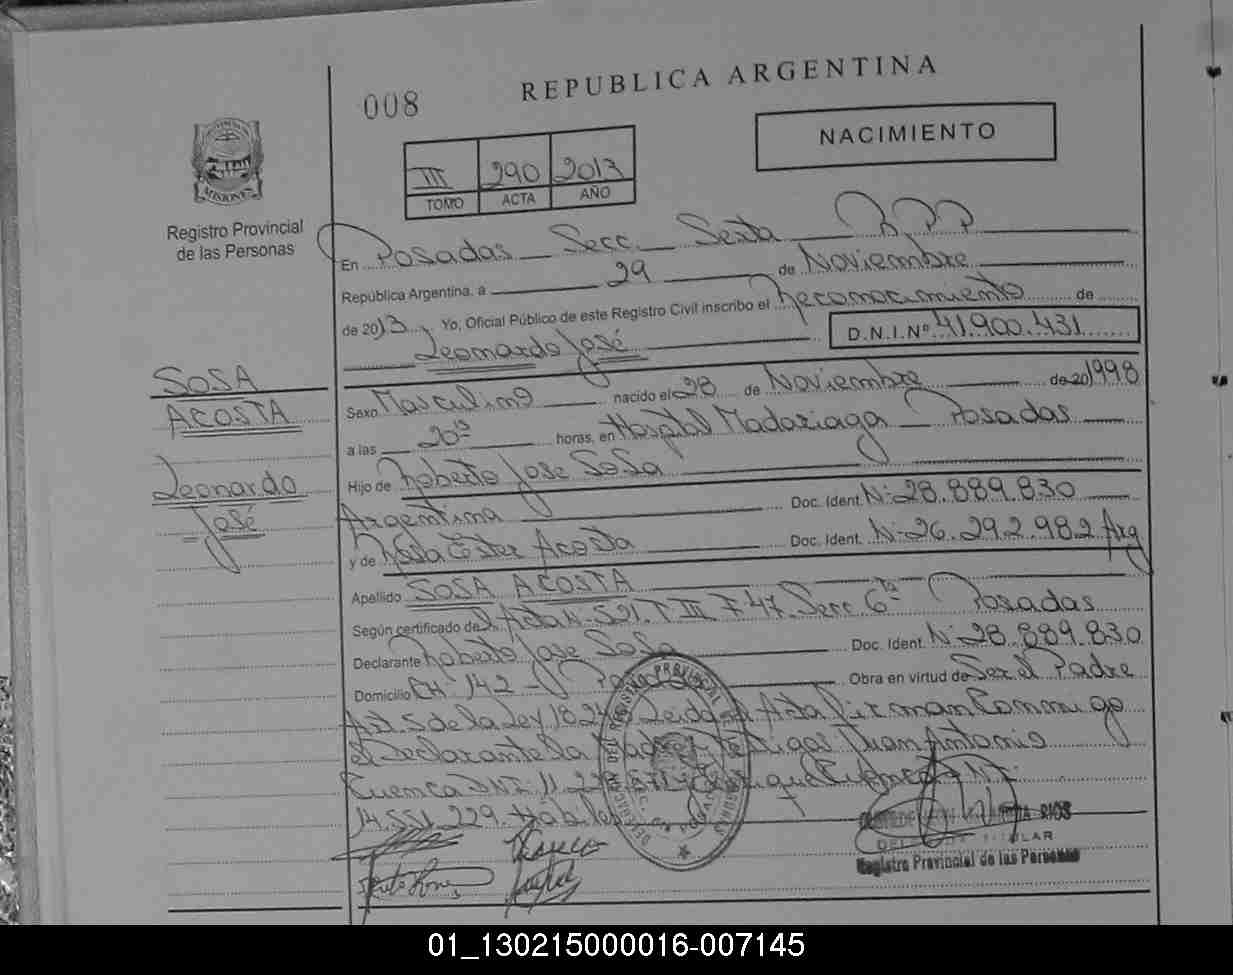 008
REPUBLICA ARGENTINA
NACIMIENTO
III 290 2013
TOMO ACTA AÑO
MISIONES
Registro Provincial
de las Personas
En Posadas Secc. Sexta B.PP
República Argentina, a 29 de Noviembre
de 2013. Yo, Oficial Público de este Registro Civil inscribo el Reconocimiento de
Leonardo José D.N.I.Nº 41.900.431
SOSA
ACOSTA
Leonardo
José
Sexo Masculino nacido el 28 de Noviembre de 20 1998
a las 20 horas, en Hospital Madariaga Posadas
Hijo de Roberto Jose Sosa
Argentina Doc. Ident. N: 28.889.830
y de Ester Acosta Doc. Ident. N: 26.292.982 Arg
Apellido SOSA ACOSTA
Según certificado de Acta N: 521. T III F 47. Secc 6ta Posadas
Declarante Roberto Jose Sosa Doc. Ident. N: 28.889.830
Domicilio CH 142 - Posadas Obra en virtud de Ser el Padre
Art. 5 de la Ley 18.2 Leida el Acta Firman Conmigo
el Declarante la Madre Testigos Juan Antonio
Cuenca DNI: 11. Cuenca DNI:
14.551.229. Hábiles
REGISTRO PROVINCIAL
RIOS
TITULAR
Registro Provincial de las Personas
01_130215000016-007145